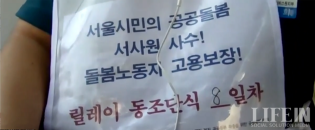 서울시민의 공공돌봄
서사원 사수!
돌봄노동자 고용보장!
릴레이 동조단식 8 일차
LIFEIN